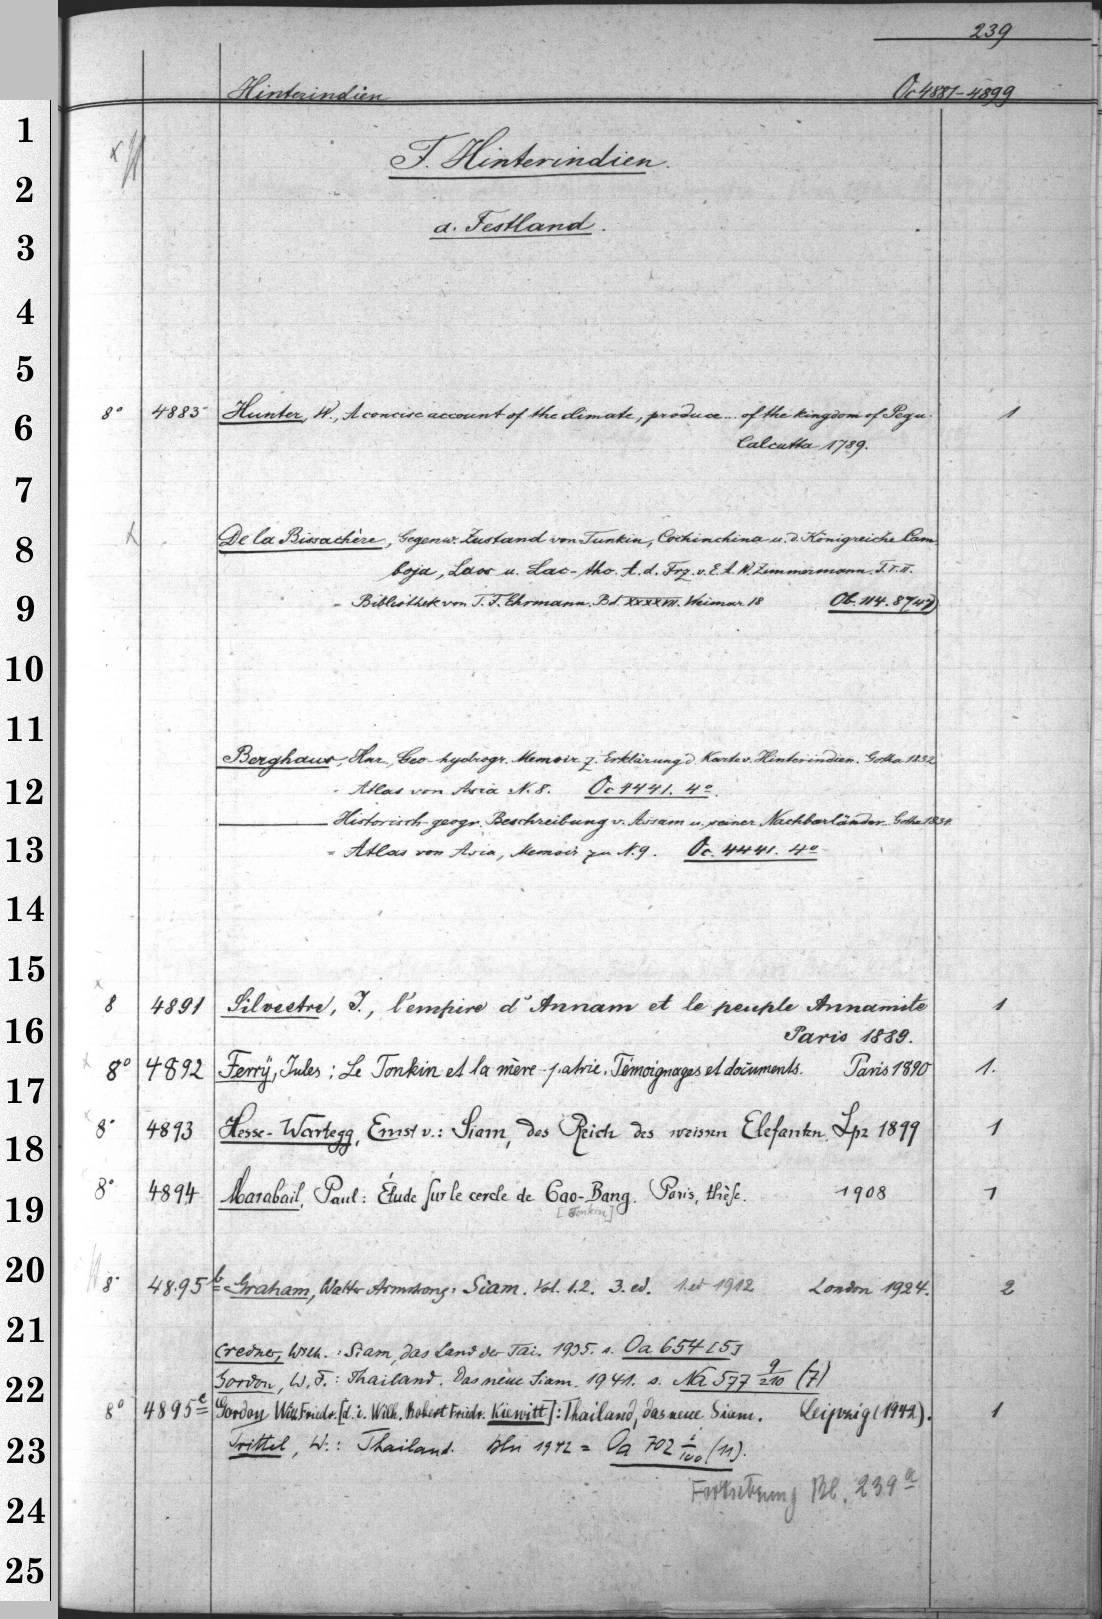 239
Hinterindien Oc 4881-4899
F. Hinterindien.
a. Festland.
8° 4885 Hunter, W., A concise account of the climate, produce... of the kingdom of Pegu. 1
Calcutta 1789.
De la Bissachère, Gegenw. Zustand von Tunkin, Cochinchina u. d. Königreiche Cam
boja, Laos u. Lac-tho. A. d. Frz. v. E. A. W. Zimmermann. T. I. II.
= Bibliothek von T. F. Ehrmann. Bd. XXXXVII. Weimar 18 Ob. 114. 8°(47)
Berghaus, Hnr., Geo-hydrogr. Memoir z. Erklärung d. Karte v. Hinterindien. Gotha 1832
= Atlas von Asia N. 8. Oc 4441. 4°.
Historisch-geogr. Beschreibung v. Assam u. seiner Nachbarländer. Gotha 1834.
= Atlas von Asia, Memoir zu N. 9. Oc. 4441. 4°
8 4891 Silvestre, J., l'empire d'Annam et le peuple Annamite 1
Paris 1889.
8° 4892 Ferry, Jules: Le Tonkin et la mère-patrie. Témoignages et documents. Paris 1890 1.
8° 4893 Hesse-Wartegg, Ernst v.: Siam, das Reich des weissen Elefanten. Lpz 1899 1
8° 4894 Marabail, Paul: Étude sur le cercle de Cao-Bang. Paris, thèse. 1908 1
[Tonkin]
8° 4895 b Graham, Walter Armstrong: Siam. Vol. 1.2. 3. ed. 1. ed 1912 London 1924. 2
Credner, Wilh.: Siam, das Land der Tai. 1935. s. Oa 654 [5]
Gordon, W. F.: Thailand. Das neue Siam. 1941. s. Na 577 9/210 (7)
8° 4895 e Gordon, Will Friedr. [d. i. Wilh. Robert Friedr. Kiewitt]: Thailand, das neue Siam. Leipzig (1942). 1
Trittel, W.: Thailand. Bln 1942 = Oa 702 i/100 (11).
Fortsetzung Bl. 239 a
1
2
3
4
5
6
7
8
9
10
11
12
13
14
15
16
17
18
19
20
21
22
23
24
25